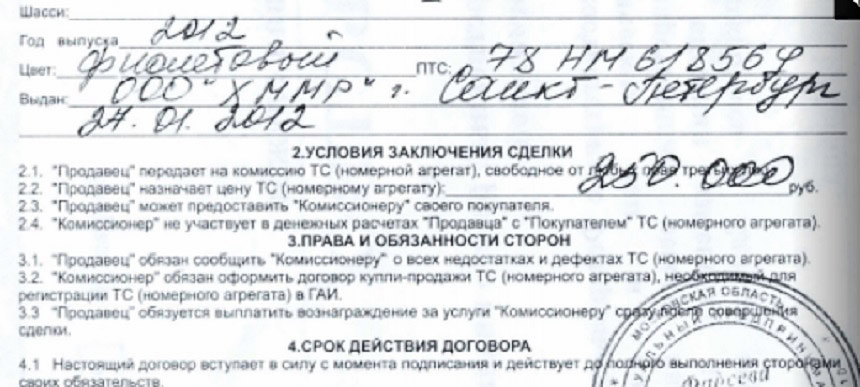 Шасси:
Год выпуска 2012
Цвет: фиолетовый ПТС: 78 НМ 618564
Выдан: ООО "ХММР" г. Санкт-Петербург
27.01.2012
2.УСЛОВИЯ ЗАКЛЮЧЕНИЯ СДЕЛКИ
2.1. "Продавец" передает на комиссию ТС (номерной агрегат), свободное от любых прав третьих лиц.
2.2. "Продавец" назначает цену ТС (номерному агрегату): 250.000 руб.
2.3. "Продавец" может предоставить "Комиссионеру" своего покупателя.
2.4. "Комиссионер" не участвует в денежных расчетах "Продавца" с "Покупателем" ТС (номерного агрегата).
3.ПРАВА И ОБЯЗАННОСТИ СТОРОН
3.1. "Продавец" обязан сообщить "Комиссионеру" о всех недостатках и дефектах ТС (номерного агрегата).
3.2. "Комиссионер" обязан оформить договор купли-продажи ТС (номерного агрегата), необходимый для
регистрации ТС (номерного агрегата) в ГАИ.
3.3 "Продавец" обязуется выплатить вознаграждение за услуги "Комиссионеру" сразу после совершения
сделки.
МОСКОВСКАЯ ОБЛАСТЬ
4.СРОК ДЕЙСТВИЯ ДОГОВОРА
4.1 Настоящий договор вступает в силу с момента подписания и действует до полного выполнения сторонами
своих обязательств.